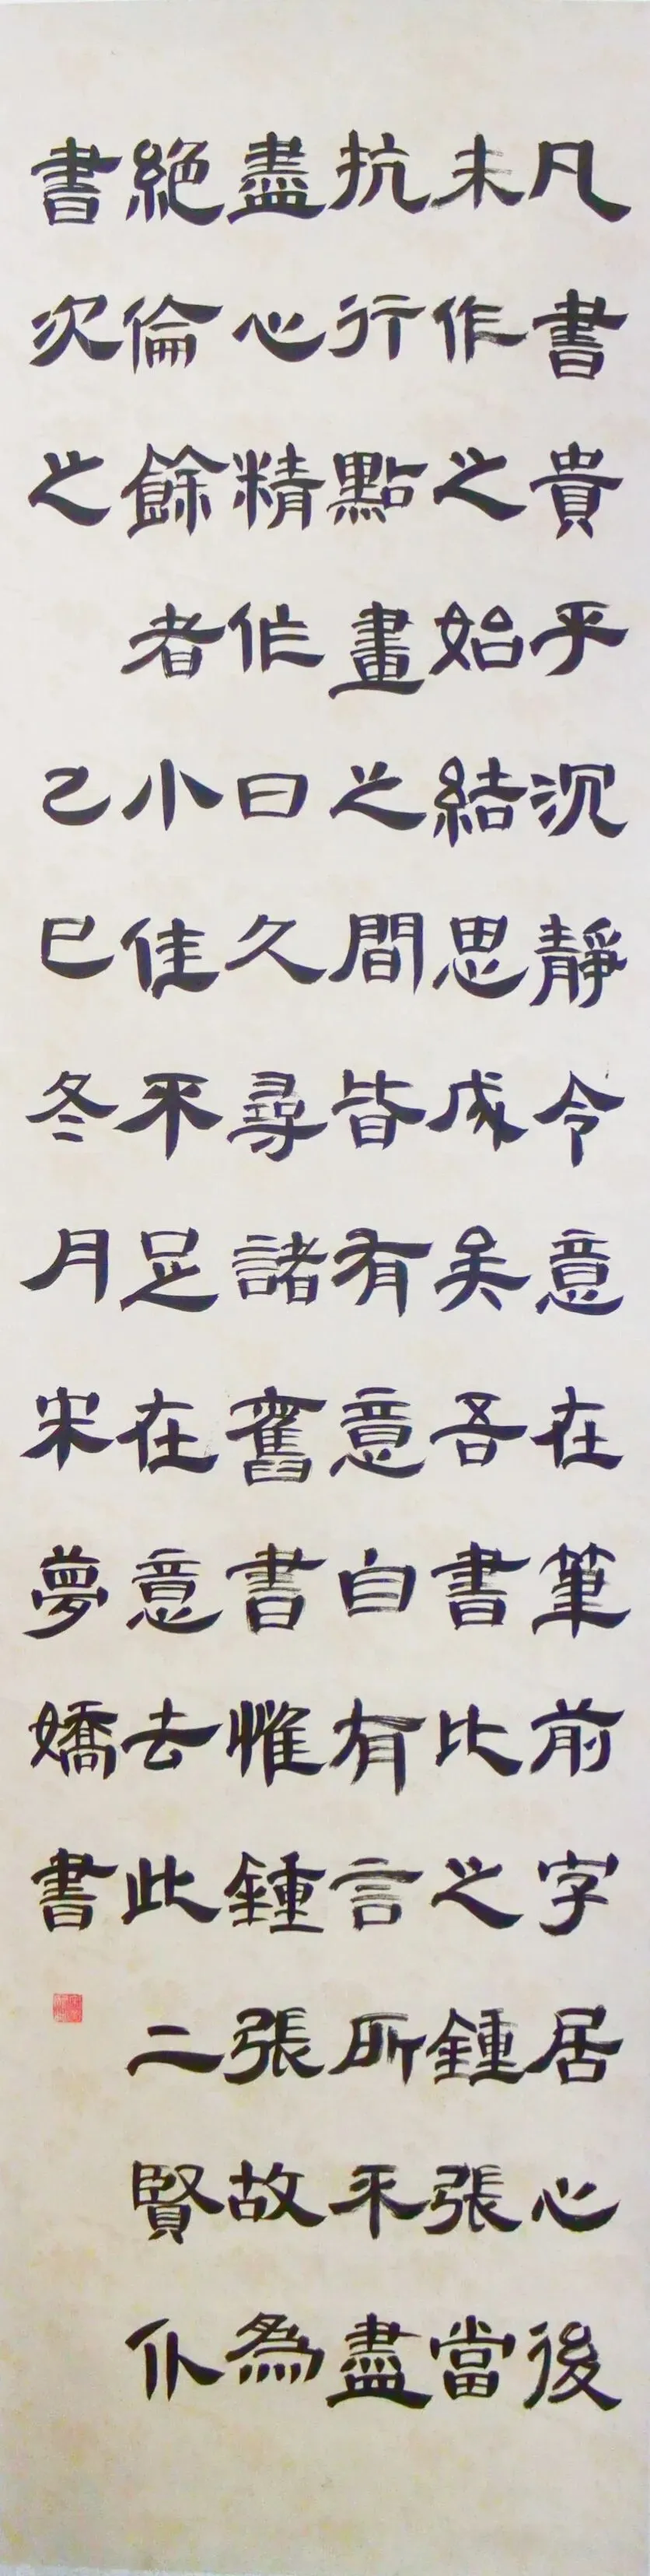 凡書貴乎沉靜令意在筆前字居心後
未作之始結思成矣吾書比之鍾張當
抗行點畫之間皆有意自有言所不盡
盡心精作曰久尋諸舊書惟鍾張故為
絕倫餘者小佳不足在意去此二賢仆
書次之己巳冬月宋夢嬌書